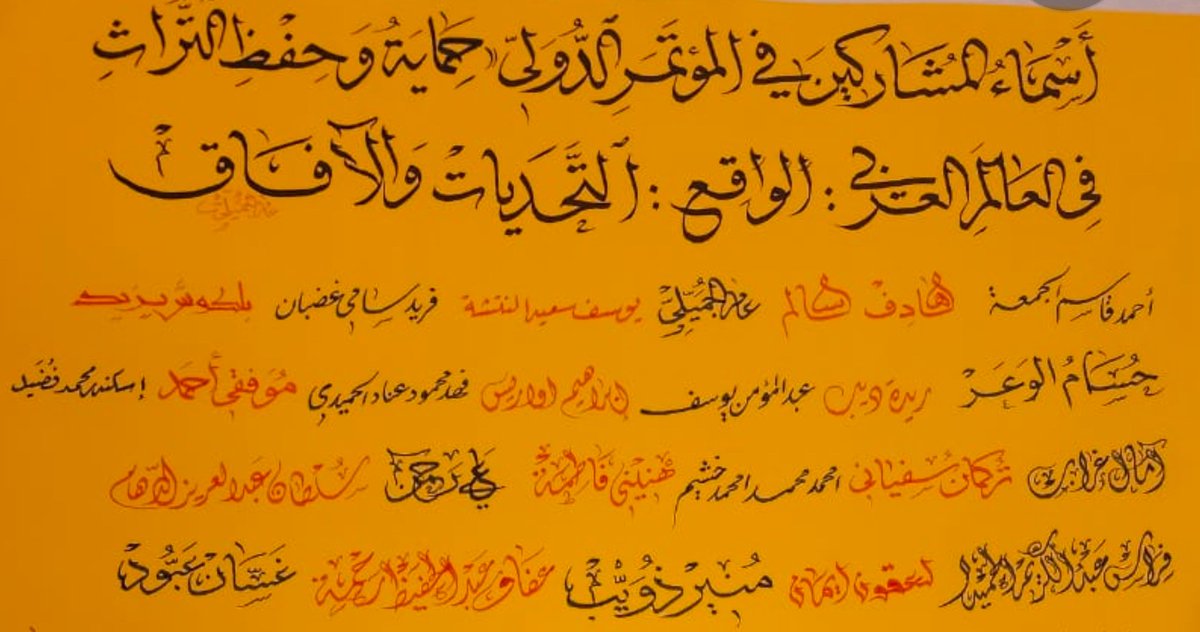 أَسْمَاءُ المُشَاركينَ في المؤتمَرِ الدُّوَليّ (حِمَايَةُ وَحِفْظِ التُّرَاثِ
فِي العَالَمِ العَرَبي : الواقع : التَّحَدِيَاتْ وَالآفَاق
أحمد قاسم الجمعة الهادف سالم عامر الجُمَيْلِيّ يوسف سعيد النتشة فريد سامي غضبان
حُسَامُ الوَعَرْ ريدة ديب عبد المؤمن يوسف ابراهيم اواريس فهد محمود عناد الحميدي مُوَفقي أحمد إسكندر محمد فضيد
آمال غراب تركمان سُفْيَاني احمد محمد احمد خشيم هنيني فاطمة علي رحيم سُلْطان عبد العزيز الدّهام
فراس عبد الكريم لعقون ايمان مُنير ذوَيْب عفاف عبد الحفيظ رحمة غَسَّان عَبُّود